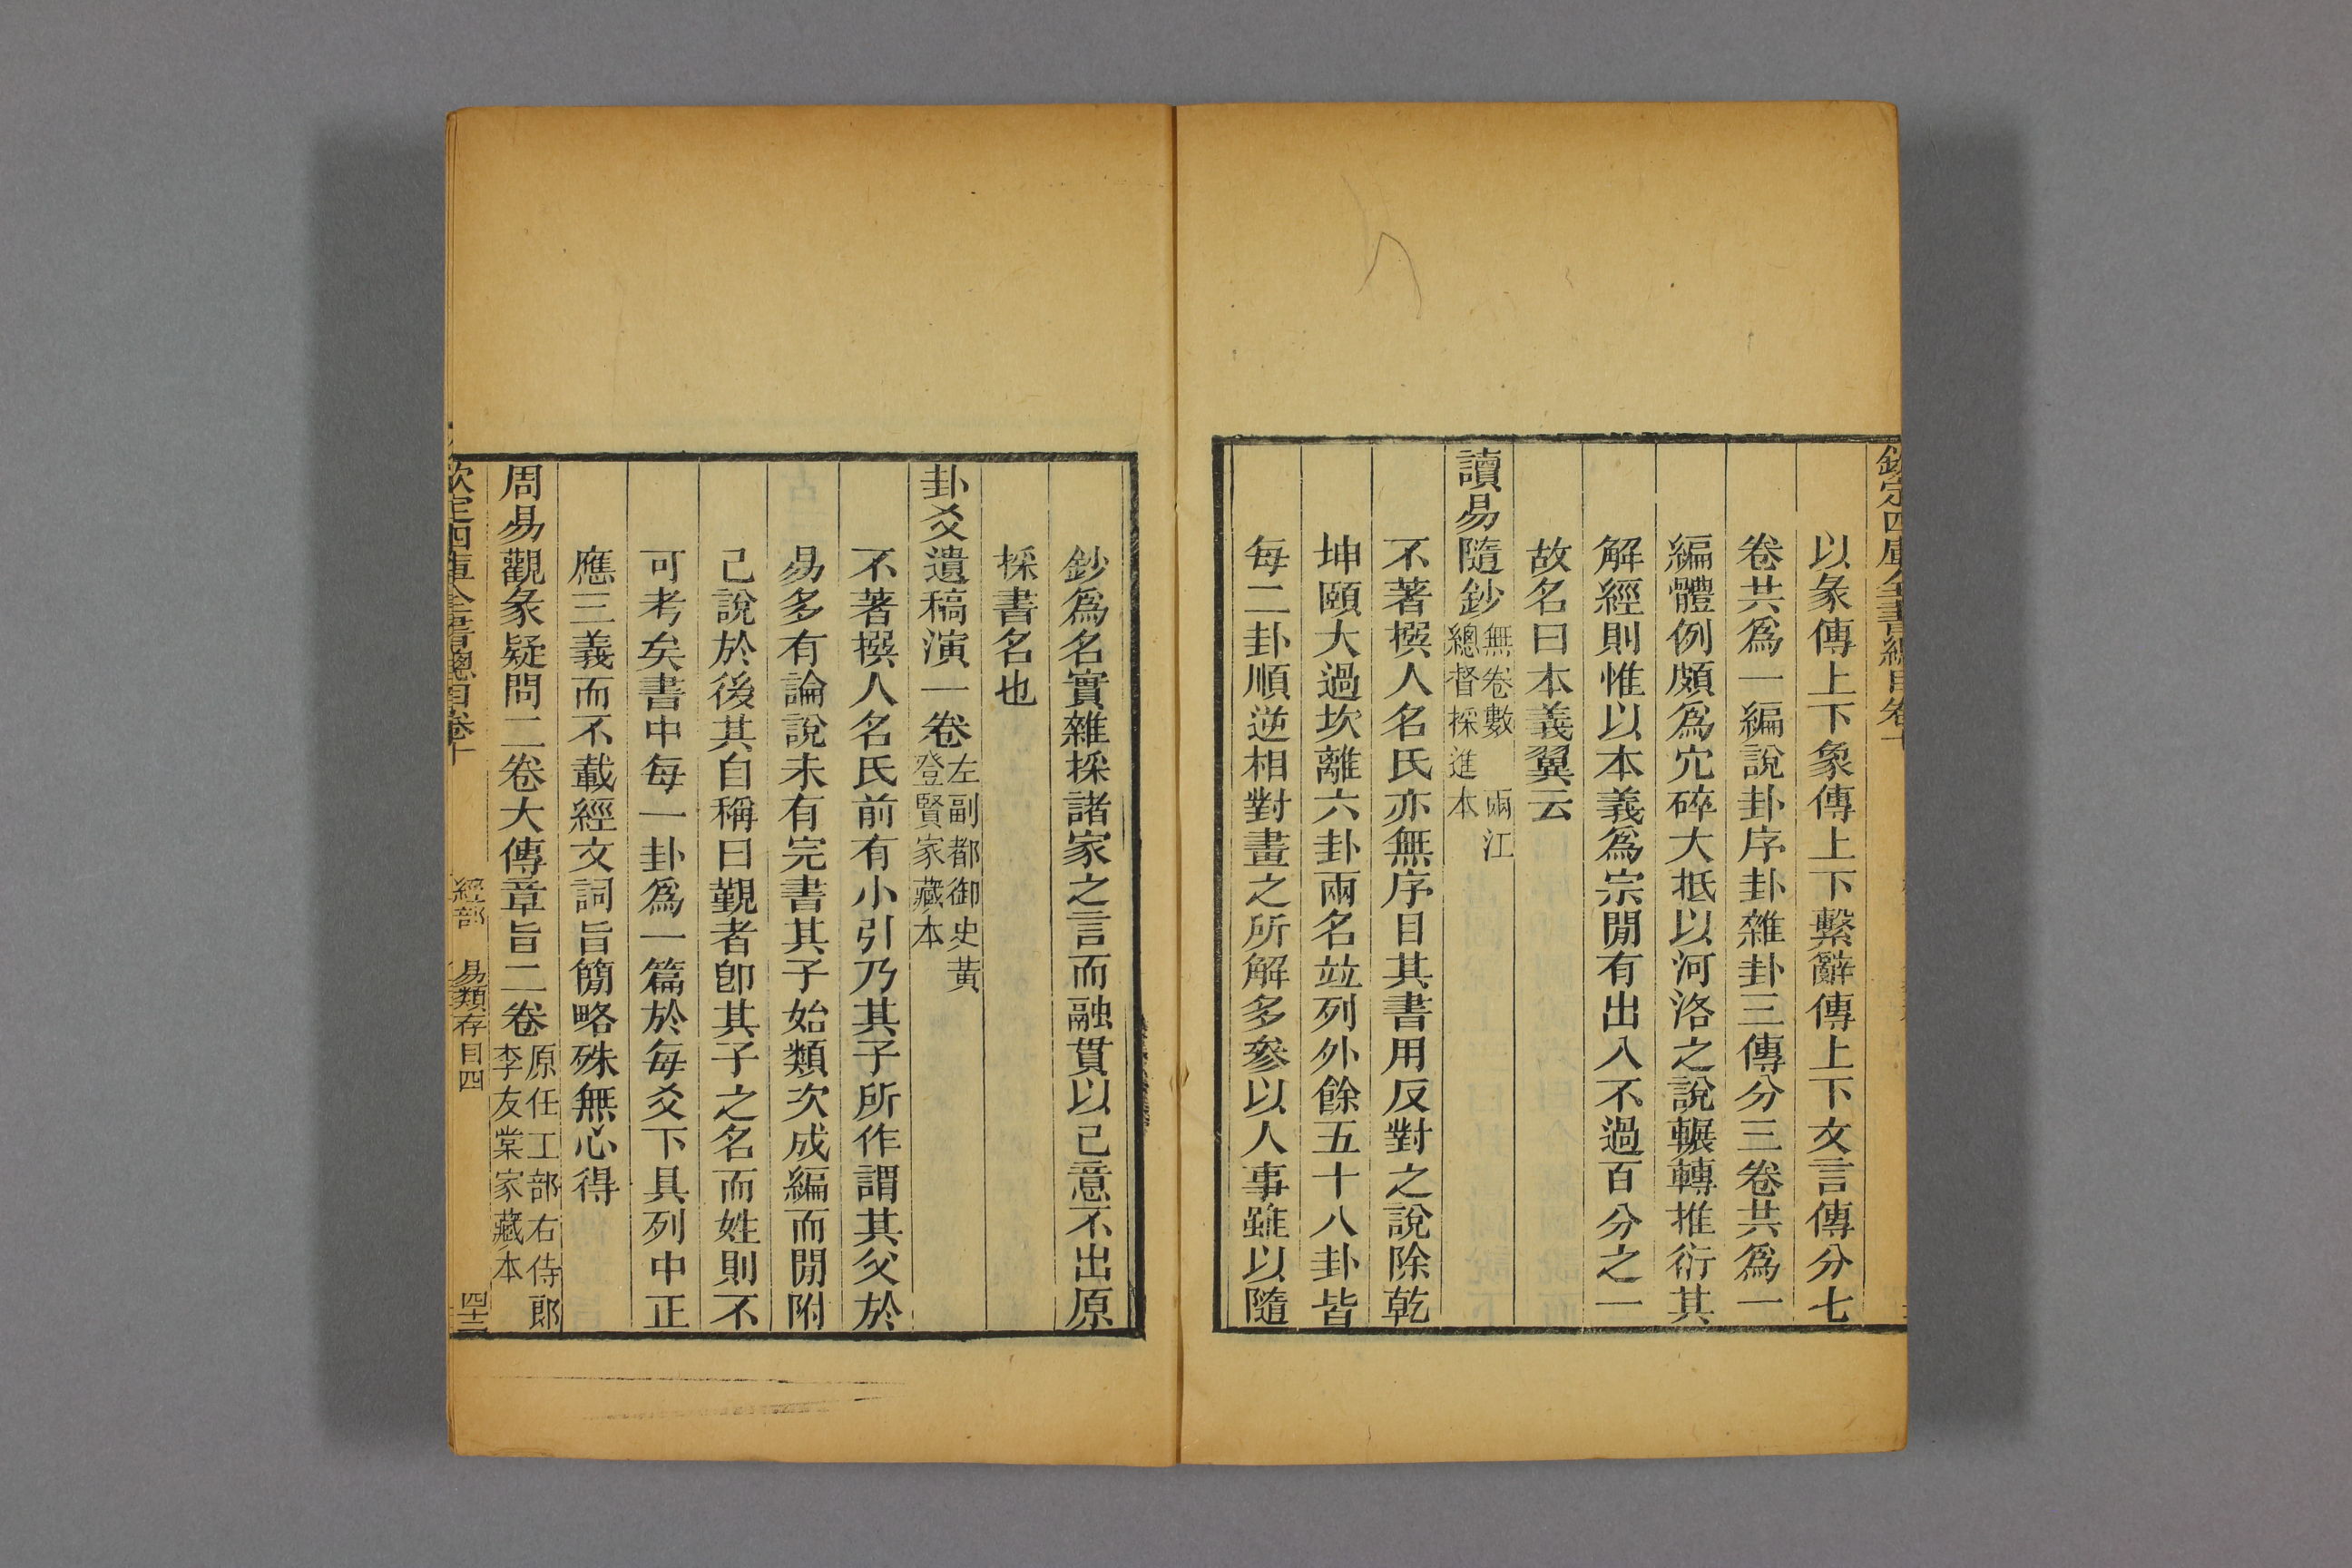 欽定四庫全書總目卷十
以彖傳上下象傳上下繫辭傳上下文言傳分七
卷共爲一編說卦序卦雜卦三傳分三卷共爲一
編體例頗爲冗碎大抵以河洛之說輾轉推衍其
解經則惟以本義爲宗閒有出入不過百分之一
故名曰本義翼云
讀易隨鈔無卷數 兩江總督採進本
不著撰人名氏亦無序目其書用反對之說除乾
坤頤大過坎離六卦兩名竝列外餘五十八卦皆
每二卦順逆相對畫之所解多參以人事雖以隨
鈔爲名實雜採諸家之言而融貫以己意不出原
採書名也
卦爻遺稿演一卷左副都御史黃登賢家藏本
不著撰人名氏前有小引乃其子所作謂其父於
易多有論說未有完書其子始類次成編而閒附
己說於後其自稱曰觀者卽其子之名而姓則不
可考矣書中每一卦爲一篇於每爻下具列中正
應三義而不載經文詞旨簡略殊無心得
周易觀彖疑問二卷大傳章旨二卷原任工部右侍郎李友棠家藏本
欽定四庫全書總目卷十 經部 易類存目四 四十三